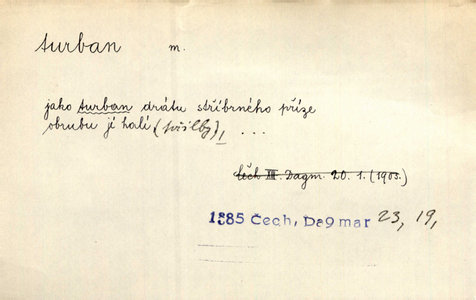 turban m.
jako turban drátu stříbrného příze
obrubu jí halí (přilby), ...
Čech III. Dagm. 20. 1. (1903.)
1385 Čech, Dagmar 23, 19,